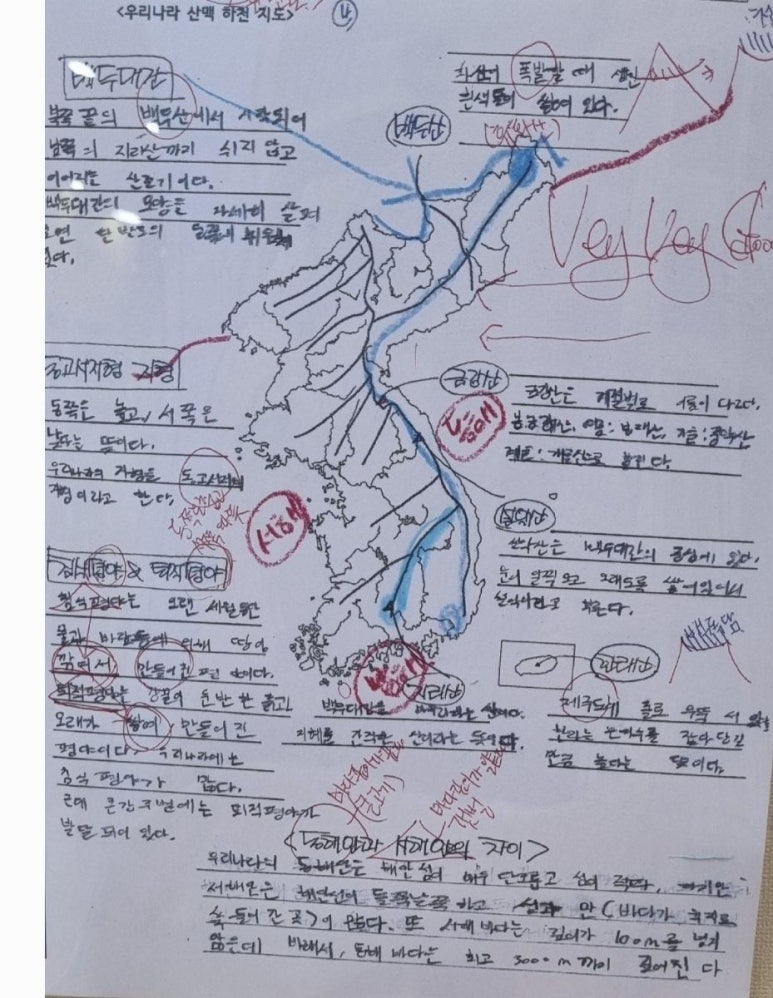 <우리나라 산맥 하천 지도>
백두대간
북쪽 끝의 백두산에서 시작되어
남쪽의 지리산까지 쉬지 않고
이어지는 산줄기이다.
백두대간의 모양을 자세히 살펴
보면 한반도의
있다.
화산이 폭발할 때 생긴
흰색 돌이 쌓여 있다.
백두산
Very Very Good
동고서저형 지형
동쪽은 높고, 서쪽은
낮다는 뜻이다.
우리나라의 지형을 동고서저
지형이라고 한다.
금강산
금강산은 계절별로 이름이 다르다.
봄: 금강산, 여름: 봉래산, 가을: 풍악산
겨울: 개골산으로 불린다.
동해
서해
남해
설악산
설악산은 백두대간의 중심에 있다.
눈이 일찍 오고 오래도록 쌓여있어서
설악이라고 부른다.
침식평야 & 퇴적평야
침식평야는 오랜 세월동안
물과 바람 등에 의해 땅이
깎여서 만들어진 평야이다.
퇴적평야는 강물이 운반한 흙이
오래가 쌓여 만들어진
평야이다. 우리나라에는
침식평야가 많다.
근데 큰강 주변에는 퇴적평야가
발달 되어 있다.
지리산
백두대간을 마무리하는 산이다.
지혜를 간직한 산이라는 뜻이다.
한라산
백록담
제주도에 홀로 우뚝 서 있는
한라는 은하수를 잡아 당길
만큼 높다는 뜻이다.
<동해안과 서해안의 차이>
우리나라의 동해안은 해안선이 매우 단조롭고 섬이 적다. 하지만
서해안은 해안선이 들쭉날쭉 하고 섬과 만(바다가 육지로
쏙 들어간 곳)이 많다. 또 서해 바다는 깊이가 100m를 넘지
않은데 반해서, 동해 바다는 최고 3000m까지 깊어진다